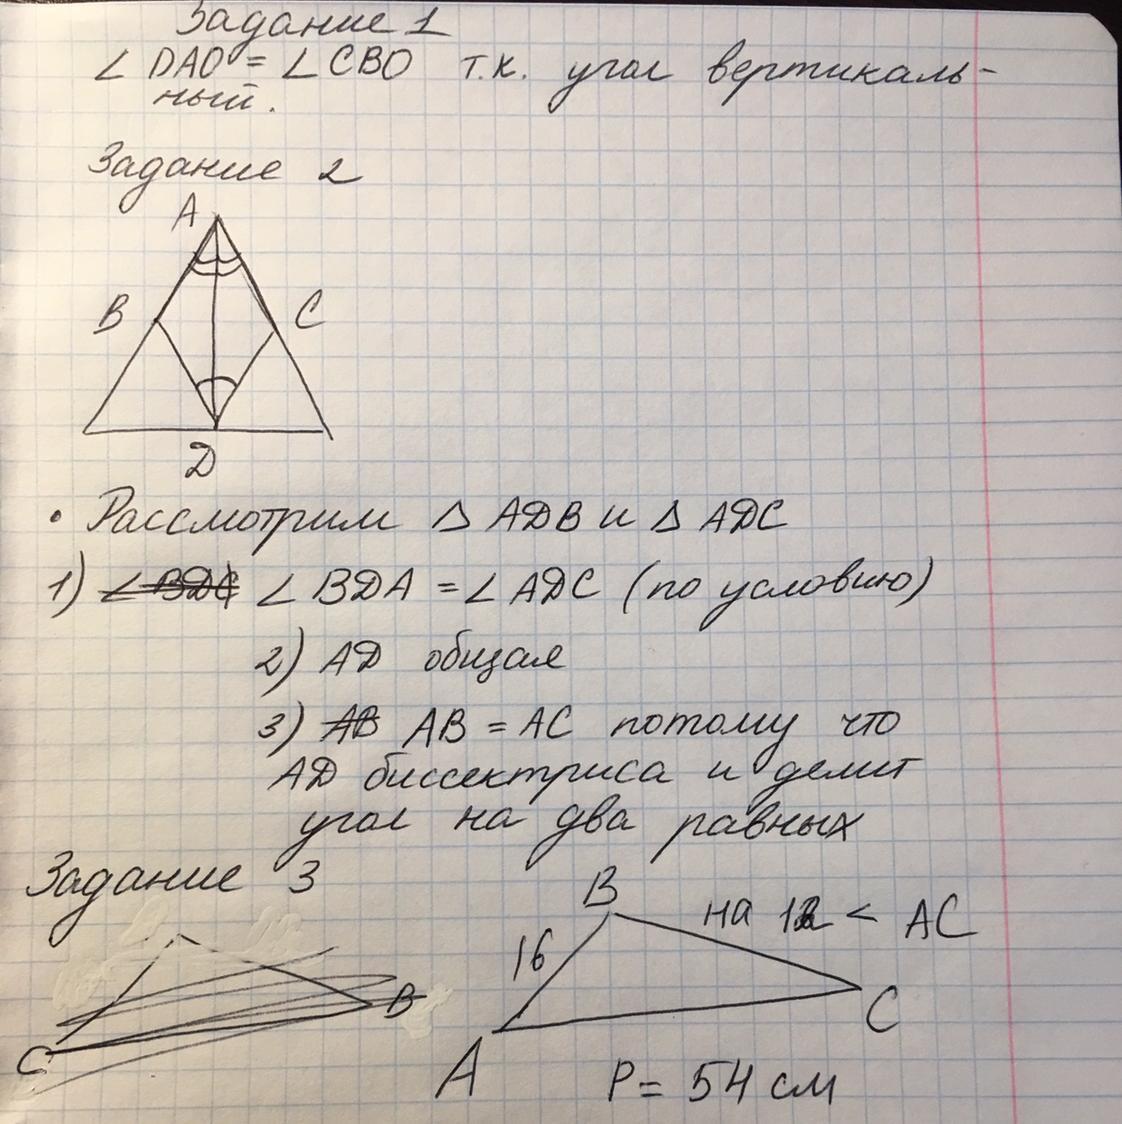 Задание 1
∠ DAO = ∠ CBO т.к. угол вертикаль-
ный.
Задание 2
A
B
C
D
• Рассмотрим △ ADB и △ ADC
1) ∠ BDC ∠ BDA = ∠ ADC (по условию)
2) AD общая
3) AB AB = AC потому что
AD биссектриса и делит
угол на два равных
Задание 3
B
на 12 < AC
16
B
C
C
A
P = 54 см